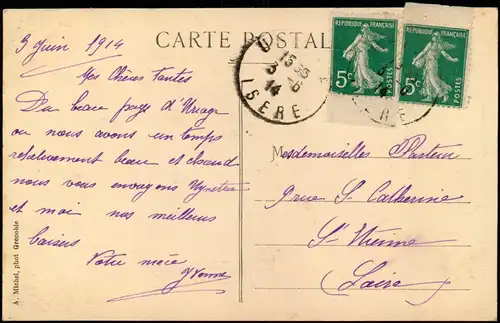 CARTE POSTAL
3 Juin 1914
Mes Chères Tantes
Du beau pays d'Uriage
ou nous avons un temps
relativement beau et chaud
nous vous envoyons
et moi nos meilleurs
baisers
Votre nièce
Yvonne
A. Michel, phot Grenoble
U
15
3
14
ISERE
REPUBLIQUE FRANÇAISE
5c
POSTES
REPUBLIQUE FRANÇAISE
5c
POSTES
RE
Mesdemoiselles Pasteur
9 rue St Catherine
St Etienne
Loire